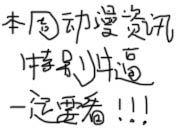 本周动漫资讯
特别牛逼
一定要看!!!